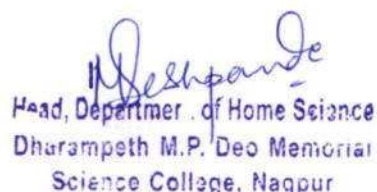 Deshpande
Head, Department of Home Science
Dharampeth M.P. Deo Memorial
Science College, Nagpur